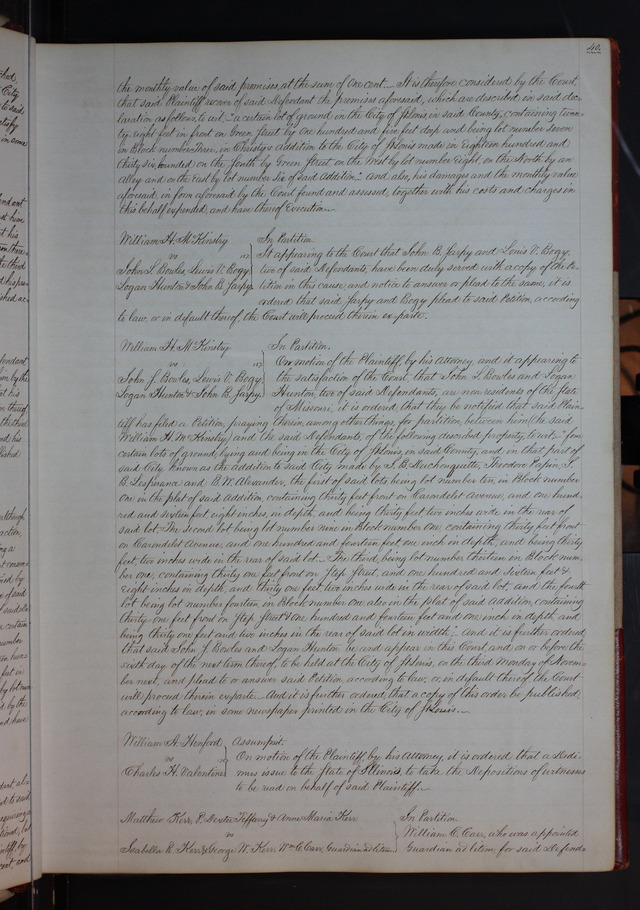 40.
the monthly value of said premises, at the sum of one cent. It is therefore considered by the Court,
that said Plaintiff recover of said Defendant the premises aforesaid, which are described in said dec-
laration as follows, to wit, "a certain lot of ground in the City of St Louis, in said County, containing twen-
ty eight feet in front on Green Street by one hundred and five feet deep and being lot number Seven
in Block number three, in Christy's addition to the City of St Louis made in Eighteen hundred and
thirty six, bounded on the South by Green Street, on the West by lot number Eight, on the North by an
alley and on the East by lot number Six of said Addition." And also, his damages and the monthly value
aforesaid, in form aforesaid by the Court found and assessed, together with his costs and charges in
this behalf expended, and have thereof Execution.
William H. McKinstry
vs
John S. Bowles, Lewis V. Bogy
Logan Hunton & John B. Sarpy
In Partition
It appearing to the Court that John B. Sarpy and Louis V. Bogy,
two of said Defendants, have been duly served with a copy of the Pe-
tition in this cause, and notice to answer or plead to the same, it is
ordered that said Sarpy and Bogy plead to said Petition, according
to law, or in default thereof, the Court will proceed therein ex-parte.
William H. McKinstry
vs
John J. Bowles, Lewis V. Bogy
Logan Hunton & John B. Sarpy
In Partition.
On motion of the Plaintiff, by his Attorney and it appearing to
the satisfaction of the Court, that John S. Bowles and Logan
Hunton, two of said Defendants, are non residents of the State
of Missouri, it is ordered that they be notified that said Plain-
tiff has filed a Petition, praying therein, among other things for partition between him (the said
William H. McKinstry) and the said Defendants, of the following described property to wit, "four
certain lots of ground lying and being in the City of St Louis, in said County, and in that part of
said City known as the addition to said City made by Theodore Papin,
and B. W. Alexander, the first of said lots being lot number ten, in Block number
One in the plat of said Addition, containing thirty feet front on Carondelet Avenue, and one hund-
red and sixteen feet eight inches, in depth, and being thirty feet two inches wide in the rear of
said lot. The second lot being lot number nine in Block number one, containing thirty feet front
on Carondelet Avenue, and one hundred and fourteen feet one inch in depth, and being thirty
feet, two inches wide in the rear of said lot. The third, being lot number thirteen in Block num-
ber one, containing thirty one feet front on Street, and one hundred and sixteen feet &
eight inches in depth, and thirty one feet, two inches wide in the rear of said lot, and the fourth
lot being lot number fourteen, in Block number one also in the plat of said Addition, containing
thirty one feet front on Street & One hundred and fourteen feet and one inch in depth, and
being thirty one feet and two inches in the rear of said lot in width; And it is further ordered
that said John J. Bowles and Logan Hunton be and appear in this Court, and on or before the
sixth day of the next term thereof, to be held at the City of St Louis, on the third Monday of Novem-
ber next, and plead to or answer said Petition, according to law, or, in default thereof the Court
will proceed therein exparte. And it is further ordered, that a copy of this order be published,
according to law, in some newspaper printed in the City of St Louis.
William A.
vs
Charles H. Valentine
Assumpsit.
On motion of the Plaintiff, by his Attorney, it is ordered that a Dedi-
mus issue to the State of Illinois, to take the Depositions of witnesses
to be read on behalf of said Plaintiff.
Matthew Kerr, P. Dexter Tiffany & Anna Maria Kerr
vs
Isabella R. Kerr & George W. Kerr, Wm C. Carr, Guardian ad litem
In Partition
William C. Carr, who was appointed
Guardian ad litem, for said Defend-